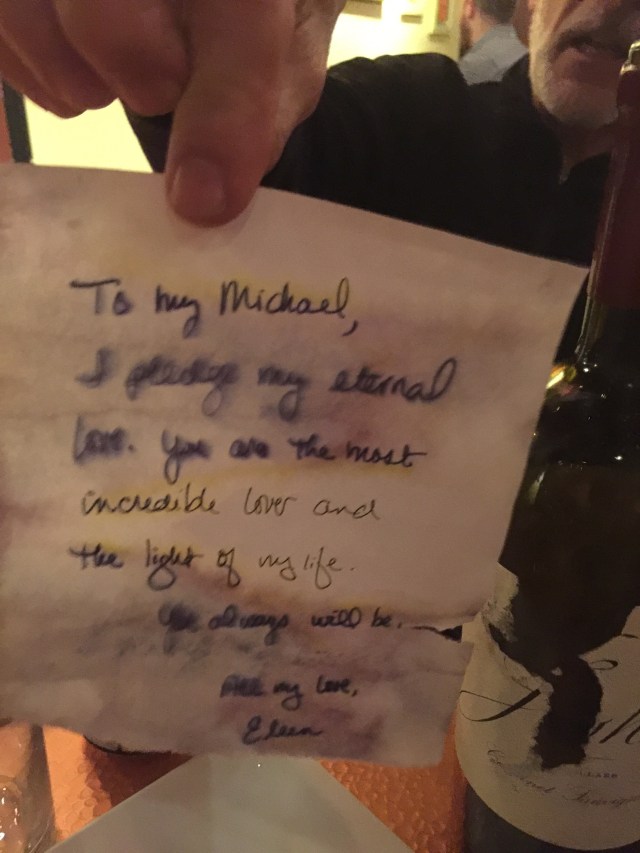 To my Michael,
I pledge my eternal
love. You are the most
incredible lover and
the light of my life.
You always will be.
All my love,
Eileen
Cabernet Sauvig